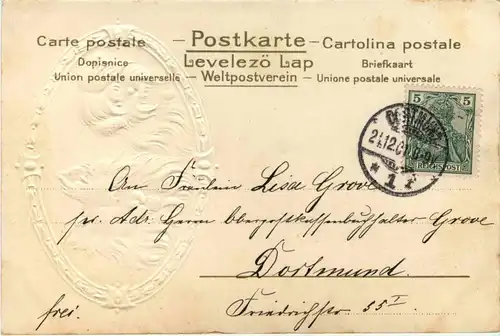 Carte postale — Postkarte — Cartolina postale
Dopisnice Levelezö Lap Briefkaart
Union postale universelle — Weltpostverein — Unione postale universale
5 5
REICHSPOST
24.12.0
* 1 r
An Fräulein Lisa Grove
pr. Adr. Herrn Oberpostkassenbuchhalter Grove
Dortmund.
frei. Friedrichstr. 55 I